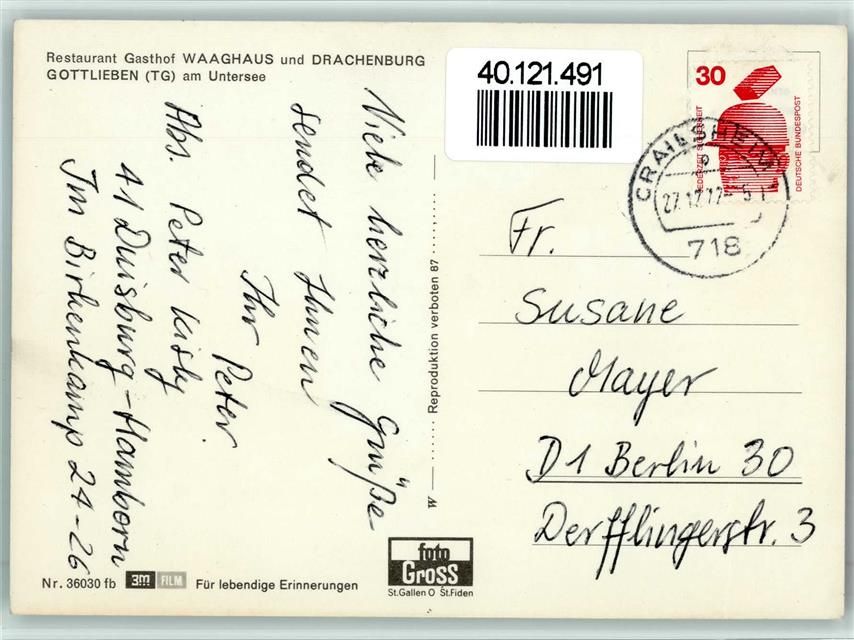 Restaurant Gasthof WAAGHAUS und DRACHENBURG
GOTTLIEBEN (TG) am Untersee
Viele herzliche Grüße
sendet Ihnen
Ihr Peter.
Abs. Peter Kisby
41 Duisburg-Hamborn
Im Birkenkamp 24-26
Reproduktion verboten 87
40.121.491
30
JEDERZEIT SICHERHEIT
DEUTSCHE BUNDESPOST
CRAILSHEIM
27.12.77-5
718
Fr.
Susane
Mayer
D1 Berlin 30
Derfflingerstr. 3
Nr. 36030 fb 3M FILM Für lebendige Erinnerungen
foto
Gross
St.Gallen O St.Fiden